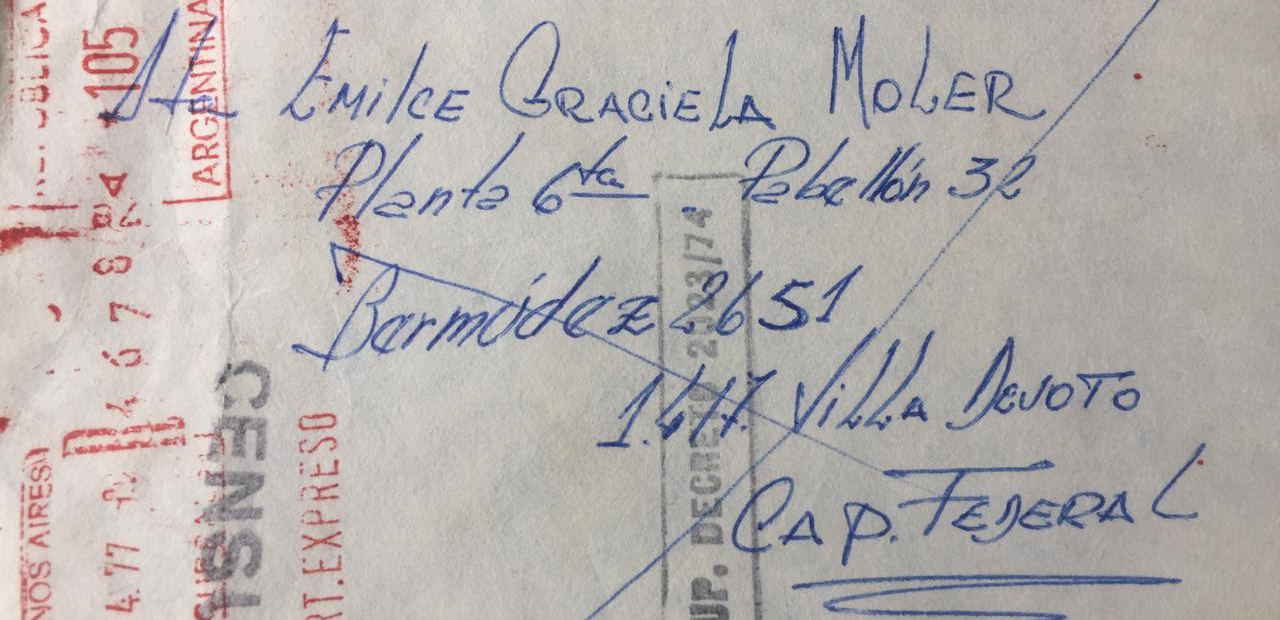 Sta Emilce Graciela Moler
Planta 6ta Pabellón 32
Bermúdez 2651
1.417. Villa Devoto
Cap. Federal
ARGENTINA
105
4 6 7 8
NOS AIRES
4 77
CENS
RT.EXPRESO
UP. DECRETO 2023/74